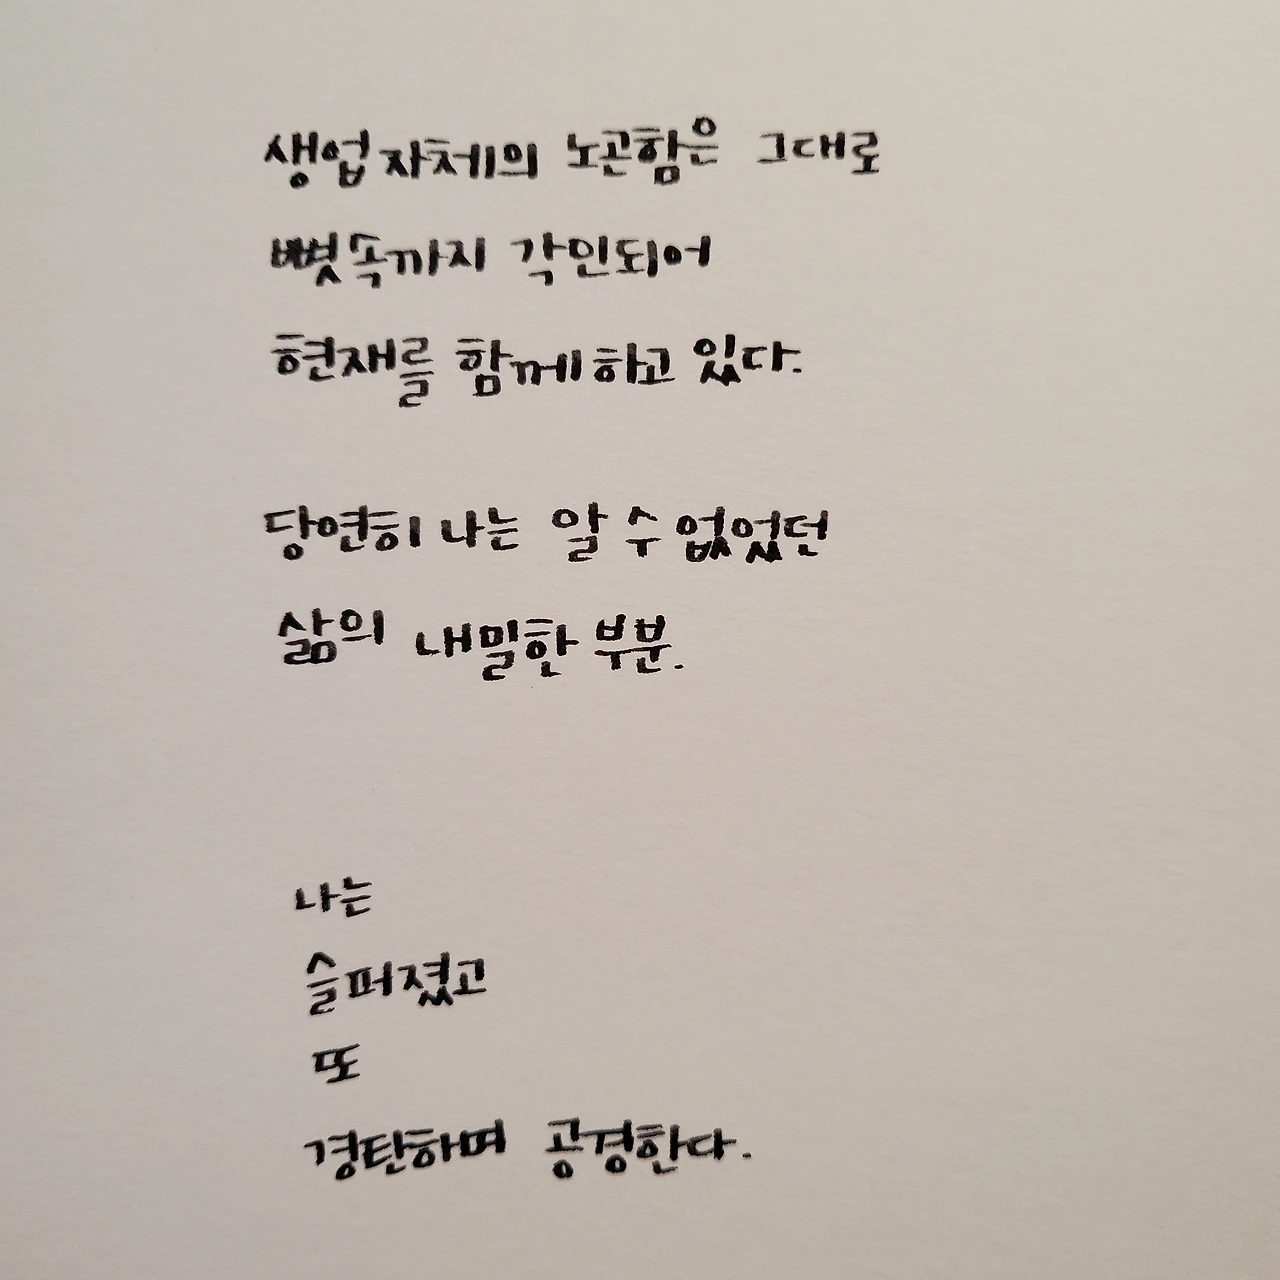 생업 자체의 노곤함은 그대로
뼛속까지 각인되어
현재를 함께하고 있다.
당연히 나는 알 수 없었던
삶의 내밀한 부분.
나는
슬퍼졌고
또
경탄하며 공경한다.